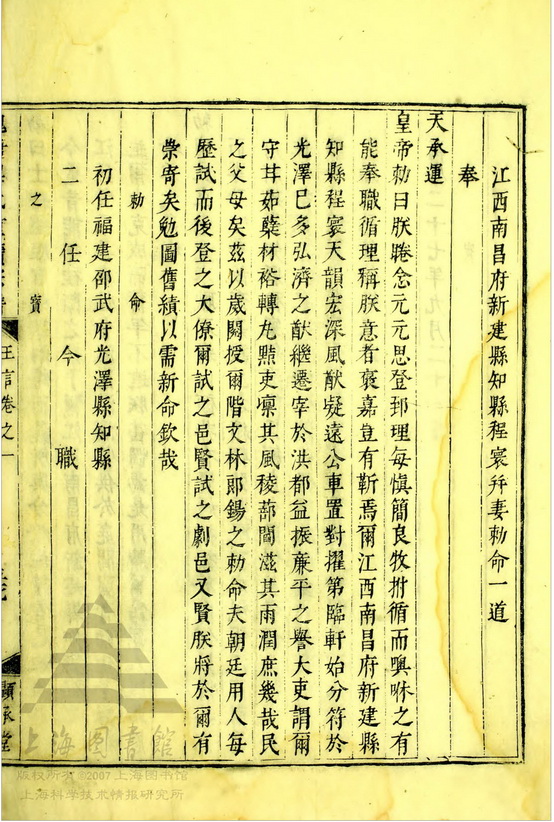 江西南昌府新建縣知縣程寰幷妻勅命一道
奉
天承運
皇帝勅曰朕睠念元元思登郅理每愼簡良牧拊循而噢咻之有
能奉職循理稱朕意者褒嘉豈有靳焉爾江西南昌府新建縣
知縣程寰天韻宏深風猷凝遠公車置對擢第臨軒始分符於
光澤已多弘濟之猷繼遷宰於洪都益振廉平之譽大吏謂爾
守甘茹蘗材裕轉九黠吏凜其風稜蔀閭滋其雨潤庶幾哉民
之父母矣茲以歲閱授爾階文林郎錫之勅命夫朝廷用人每
歷試而後登之大僚爾試之邑賢試之劇邑又賢朕將於爾有
崇寄矣勉圖舊績以需新命欽哉
勅命
初任福建邵武府光澤縣知縣
二任今職
之寶
王言卷之一
顯承堂
上海图书馆
版权所有©2007上海图书馆
上海科学技术情报研究所